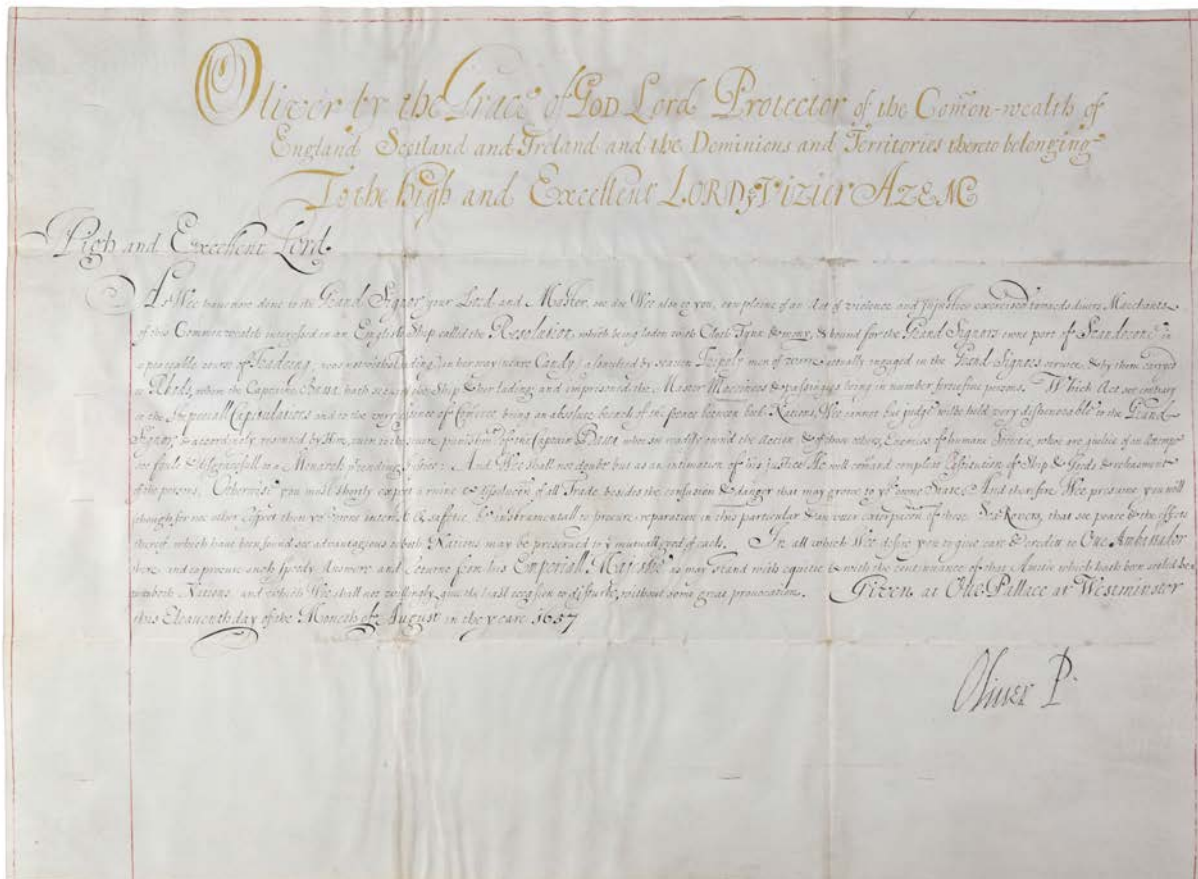 Oliver by the Grace of GOD Lord Protector of the Com̃on-wealth of
England Scotland and Ireland and the Dominions and Territories thereto belonging
To the high and Excellent LORD yͤ VIZIER AZEM
High and Excellent Lord
As Wee have done to the Grand Signor your Lord and Master, soe doe Wee also to you, complaine of an Act of violence and Injustice exercised towards divers Merchants
of this Commonwealth interessed in an English Ship called the Resolution, which being laden with Cloth Tynn & mony, & bound for the Grand Signors owne port of Scandrone in
a peaceable course of Tradeing, was notwithstanding (in her way neare Candy) assaulted by seaven Tripoly men of warre actually engaged in the Grand Signors service, & by them carried
to Rhods, where the Captaine Bassa hath secured the Ship & her lading, and imprisoned the Master Marriners & passengers being in number fortie five persons. Which Act soe contrary
to the Imperiall Capitulations and to the very essence of Com̃erce being an absolute breach of the peace between both Nations, Wee cannot but judge wilbe held very dishonorable to the Grand
Signor & accordingly resented by Him, even to the severe punishmͭ of the Captain Bassa who soe readily ownd the Action & of those others, Enemies of humane Societie, who are guiltie of an Attempt
soe foule & disgracefull to a Monarch pretending Justice: And Wee shall not doubt but as an intimation of his justice He will com̃and complete Restitution of Ship & Goods & releasment
of the persons, Otherwise you must shortly expect a ruine & of all Trade, besides the confusion & danger that may growe to yͬ owne State. And therefore Wee presume you will
though for noe other respect then yoͬ owne interest & saftie, be instrumentall to procure reparation in this particular & an utter extirpacon of these Sea-Rovers, that soe peace & the effects
thereof, which have been found soe advantagious to both Nations may be preserved to yͤ mutuall good of each. In all which Wee desire you to give eare & credit to Our Ambassador
there, and to procure such speedy Answere and Returne from his Emperiall Majestie as may stand with equitie & with the continuance of that Amitie which hath been setled
both Nations, and which Wee shall not willingly give the least occasion to disturbe, without some great provocation. Given at Our Pallace at Westminster
this Eleaventh day of the Moneth of August in the yeare 1657
Oliver P